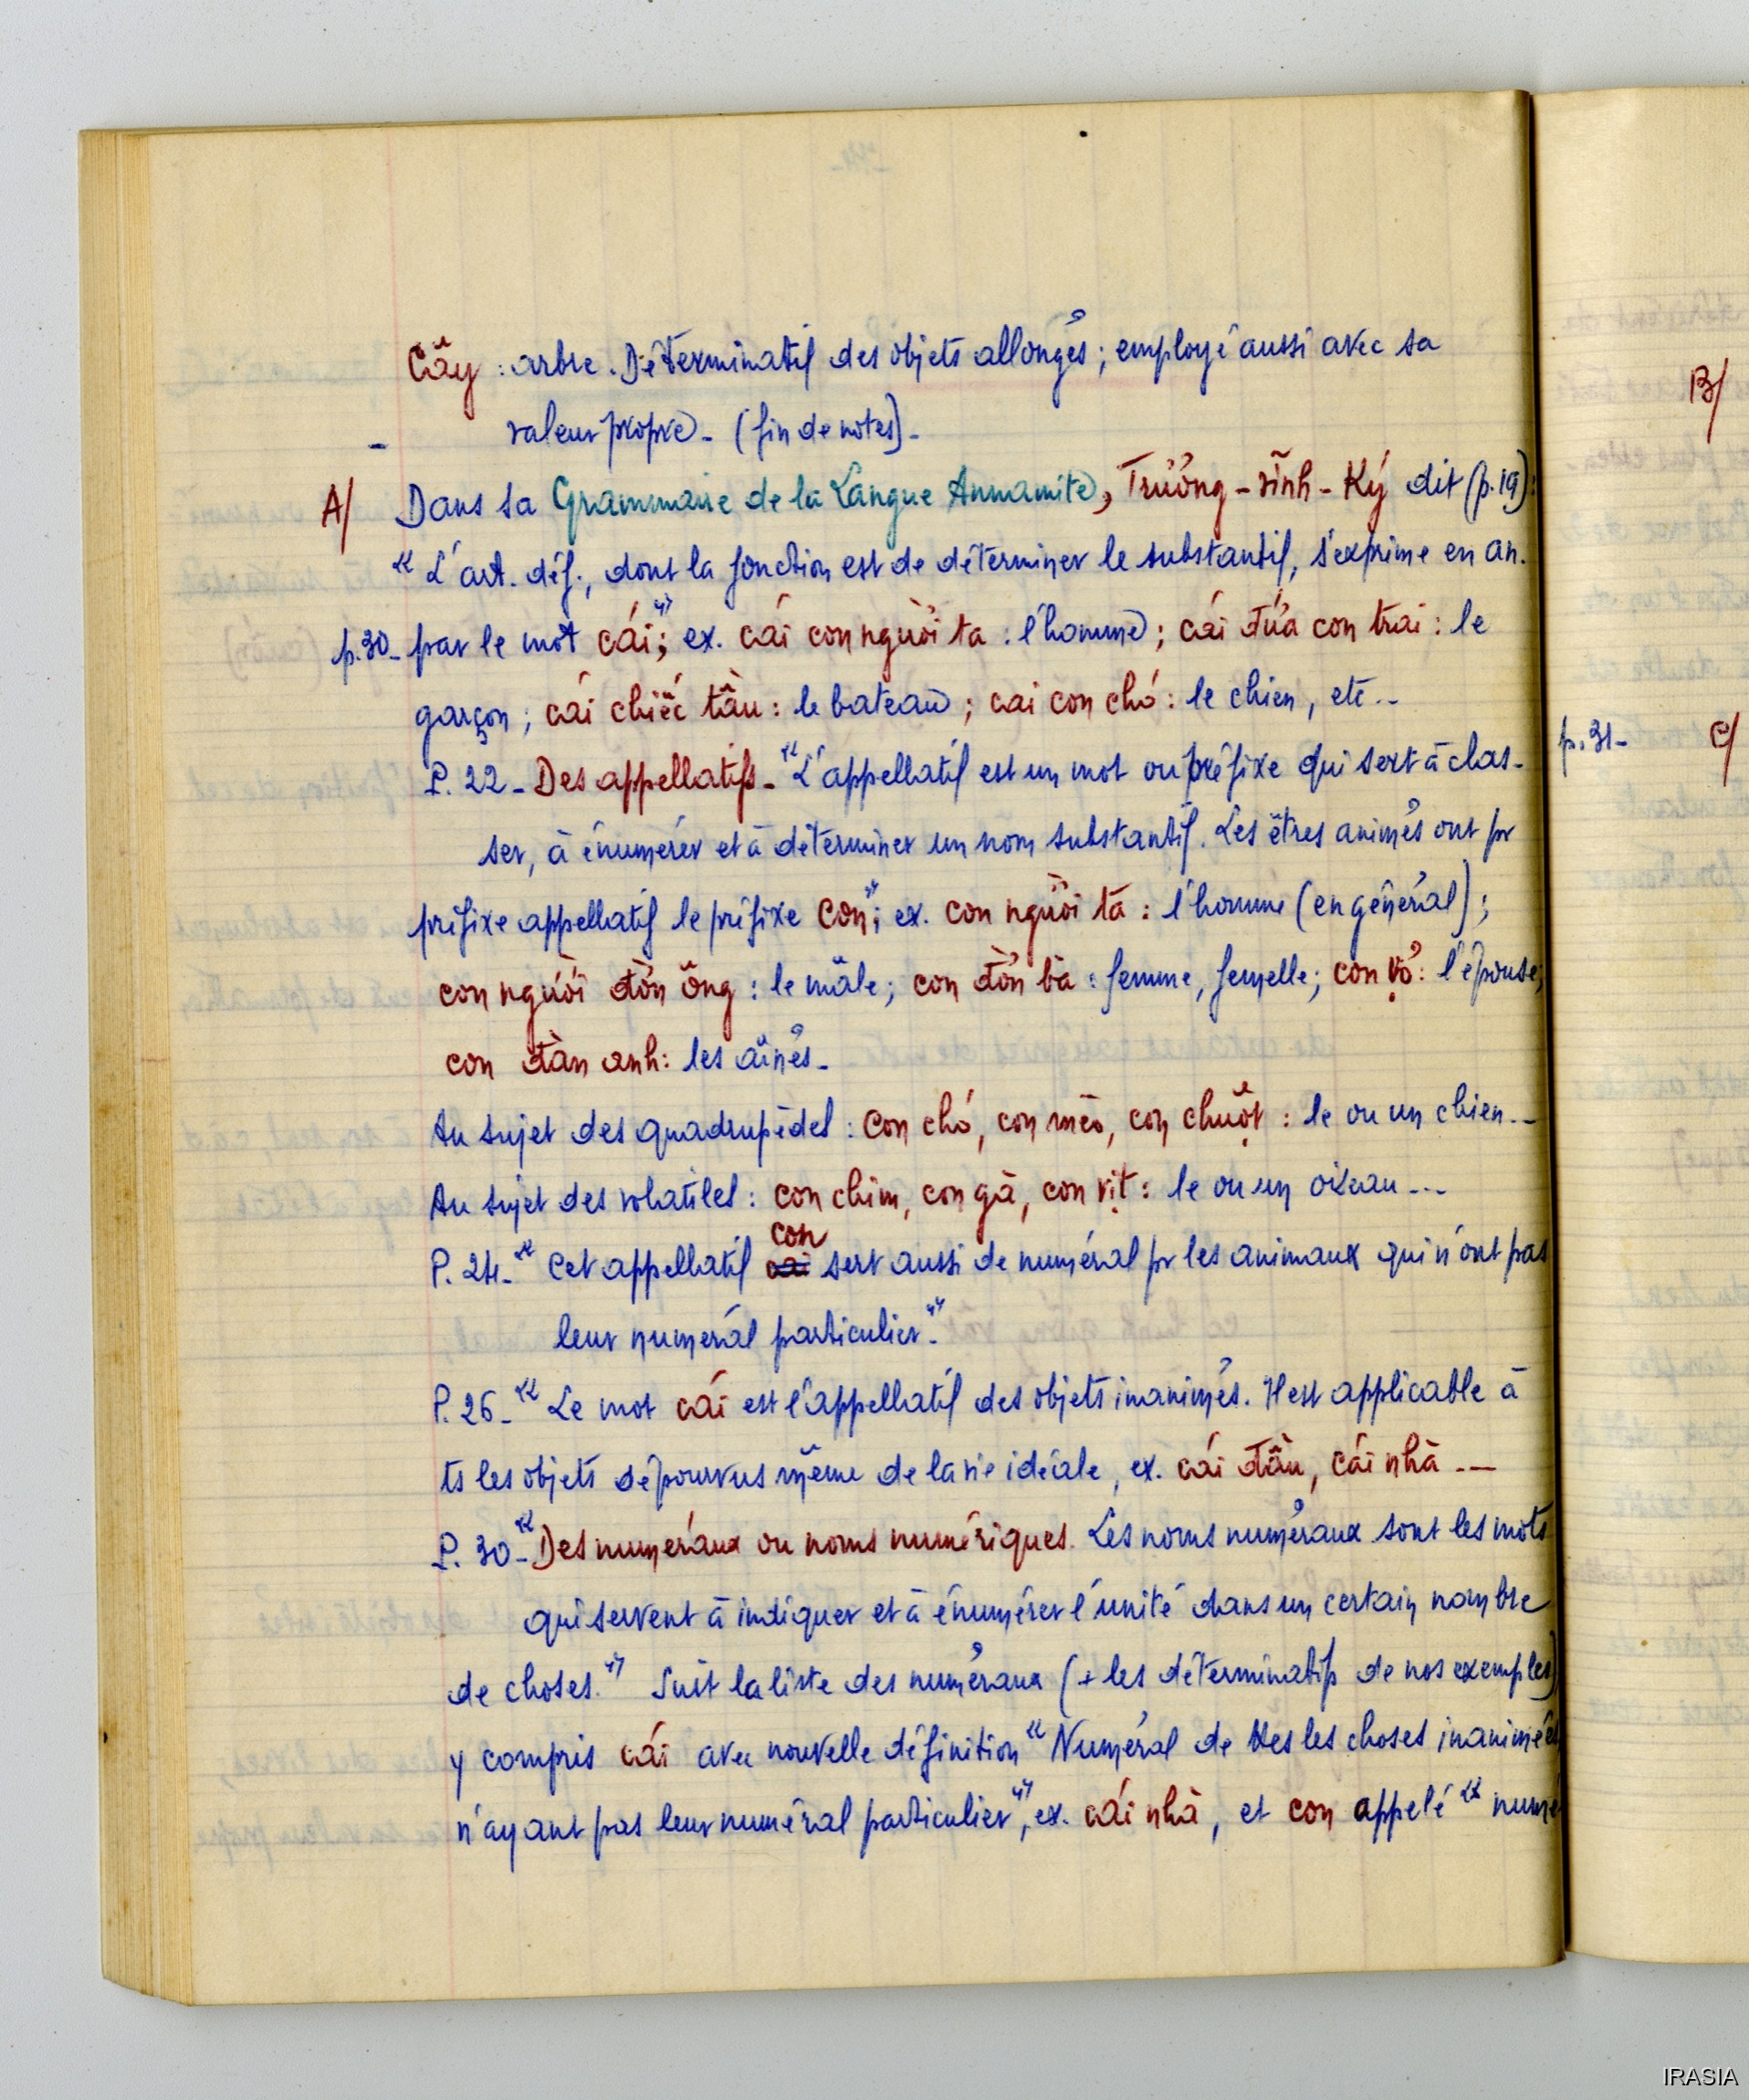 Cây : arbre. Déterminatif des objets allongés ; employé aussi avec sa
valeur propre - (fin de notes) -
A/ Dans sa Grammaire de la Langue Annamite, Trường-vĩnh-Ký dit (p.19) :
"L'art. déf., dont la fonction est de déterminer le substantif, s'exprime en an.
p.30- par le mot cái"; ex. cái con người ta : l'homme ; cái đứa con trai : le
garçon ; cái chiếc tầu : le bateau ; cai con chó : le chien, etc..
P. 22 - Des appellatifs - "L'appellatif est un mot ou préfixe qui sert à clas-
ser, à énumérer et à déterminer un nom substantif. Les êtres animés ont pr
préfixe appellatif le préfixe con"; ex. con người ta : l'homme (en général) ;
con người đờn ông : le mâle ; con đờn bà : femme, femelle ; con vợ : l'épouse ;
con đàn anh : les aînés -
Au sujet des quadrupèdes : Con chó, con mèo, con chuột : le ou un chien..
Au sujet des volatiles : con chim, con gà, con vịt : le ou un oiseau ...
con
P. 24 - "Cet appellatif cái sert aussi de numéral pr les animaux qui n'ont pas
leur numéral particulier."
P. 26 - "Le mot cái est l'appellatif des objets inanimés. Il est applicable à
ts les objets dépourvus même de la vie idéale, ex. cái đầu, cái nhà ...
P. 30 - "Des numéraux ou noms numériques. Les noms numéraux sont les mots
qui servent à indiquer et à énumérer l'unité dans un certain nombre
de choses." Suit la liste des numéraux (+ les déterminatifs de nos exemples)
y compris cái avec nouvelle définition "Numéral de ttes les choses inanimées
n'ayant pas leur numéral particulier", ex. cái nhà, et con appelé "numé
B/
p. 31- C/
IRASIA